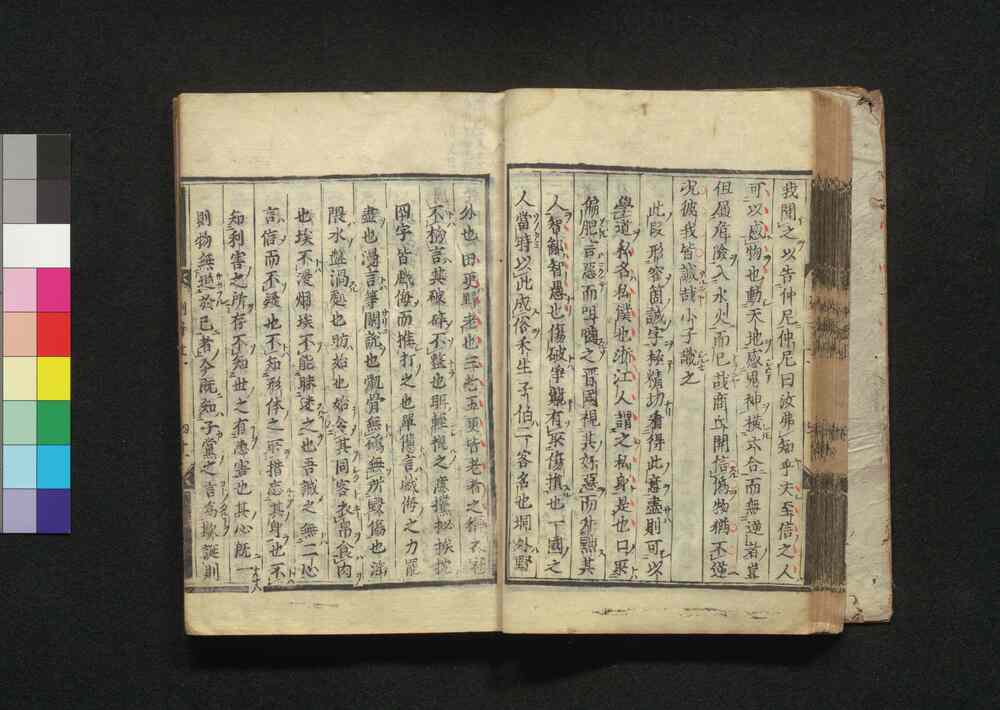 我聞之以告仲尼仲尼曰汝弗知乎夫至信之人
可以感物也動天地感鬼神橫六合而無逆者豈
但履危險入水火而已哉商丘開信偽物猶不逆
况彼我皆誠哉小子識之
此段形容箇誠字極精切看得此意盡則可以
學道私名私僕也浙江人謂之私身是也口所
偏肥言惡而咀嚼之晋國視其好惡而為黜其
人智鬭智愚也傷破爭競有所傷損也下國之
人當時以此成俗禾生子伯二客名也坰外野
外也田更野老也三老五更皆老者之稱衣冠
不檢言其破碎不整也眲輕慢之意攩㧙挨抌
四字皆戲侮而推打之也單憊言戲侮之力罷
盡也漫言等閑說也骩骨無䃣無所毀傷也淫
隈水盤渦處也昉始也始令其同客衣帛食肉
也埃不漫烟埃不能昧之也吾誠之無二心
言信而不疑也不知形体之所措忘其身也不
知利害之所存不知世之有患害也其心既一
則物無逆於己者今既知子黨之言為欺誕則